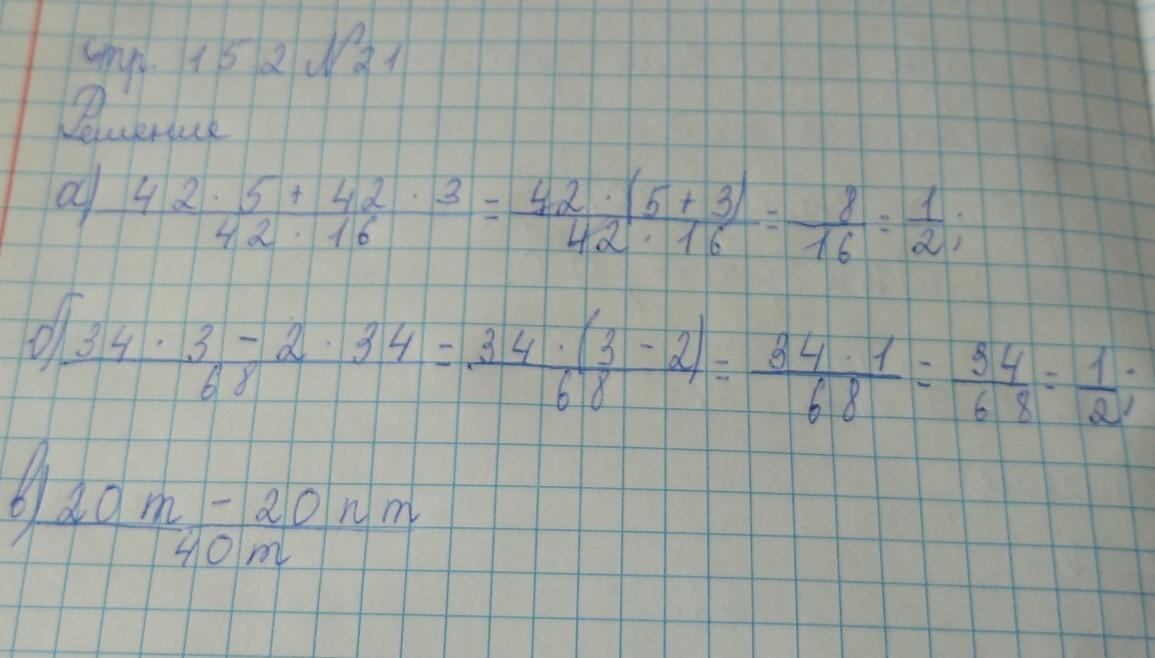 стр. 152 №21
Решение
а) (42 · 5 + 42 · 3)/(42 · 16) = (42 · (5 + 3))/(42 · 16) = 8/16 = 1/2;
б) (34 · 3 - 2 · 34)/68 = (34 · (3 - 2))/68 = (34 · 1)/68 = 34/68 = 1/2;
в) (20m - 20nm)/40m